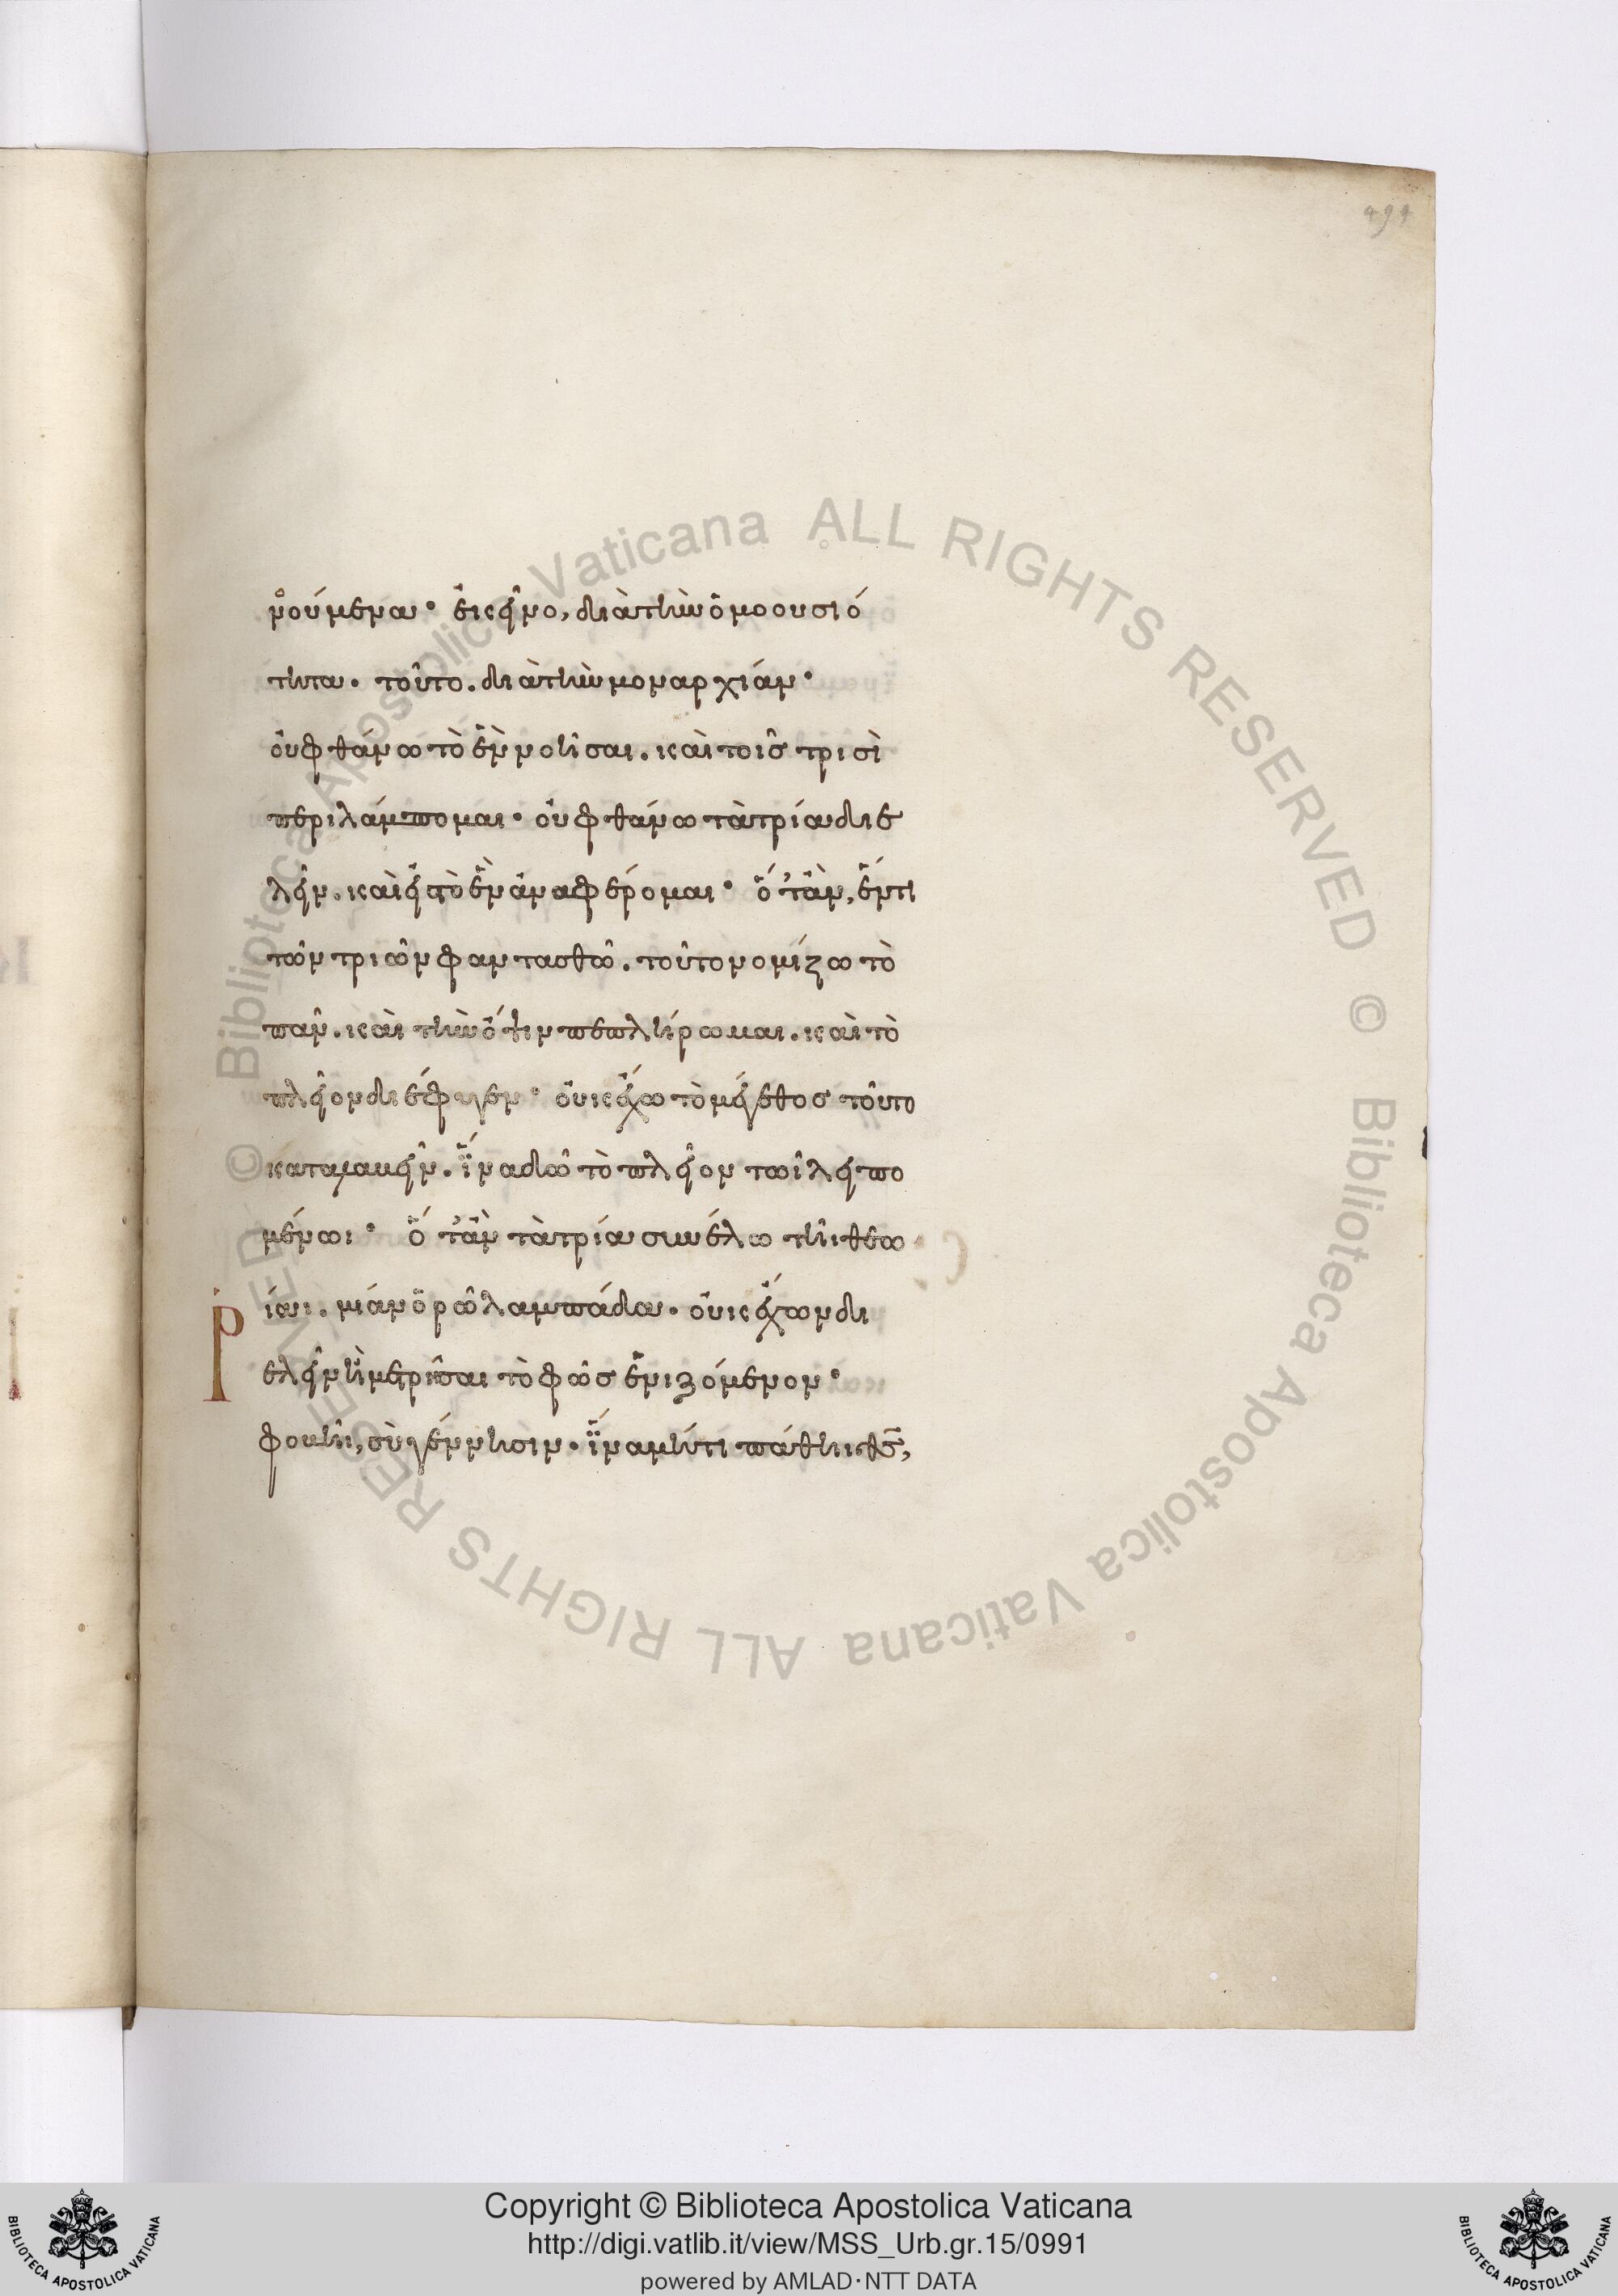 494
νούμενα· ἐκεῖνο, διὰ τὴν ὁμοουσιό
τητα. τοῦτο. διὰ τὴν μοναρχίαν·
οὐ φθάνω τὸ ἓν νοῆσαι. καὶ τοῖς τρισὶ
περιλάμπομαι· οὐ φθάνω τὰ τρία διε
λεῖν. καὶ εἰς τὸ ἓν ἀναφέρομαι· ὅταν, ἕν τι
τῶν τριῶν φαντασθῶ. τοῦτο νομίζω τὸ
πᾶν. καὶ τὴν ὄψιν πεπλήρωμαι. καὶ τὸ
πλεῖον διέφυγεν· οὐκ ἔχω τὸ μέγεθος τούτου
καταμαθεῖν. ἵνα δῶ τὸ πλεῖον τῶι λειπο
μένωι· ὅταν τὰ τρία συνέλω τῆι θεω
ρίαι. μίαν ὁρῶ λαμπάδα. οὐκ ἔχων δι
ελεῖν ἢ μετρῆσαι τὸ φῶς ἑνιζόμενον·
φοβῆι, σὺ γέννησιν. ἵνα μή τι πάθηι θ̅ς̅,
© Biblioteca Apostolica Vaticana ALL RIGHTS RESERVED © Biblioteca Apostolica Vaticana ALL RIGHTS RESERVED
Copyright © Biblioteca Apostolica Vaticana
http://digi.vatlib.it/view/MSS_Urb.gr.15/0991
powered by AMLAD·NTT DATA
BIBLIOTECA APOSTOLICA VATICANA
BIBLIOTECA APOSTOLICA VATICANA